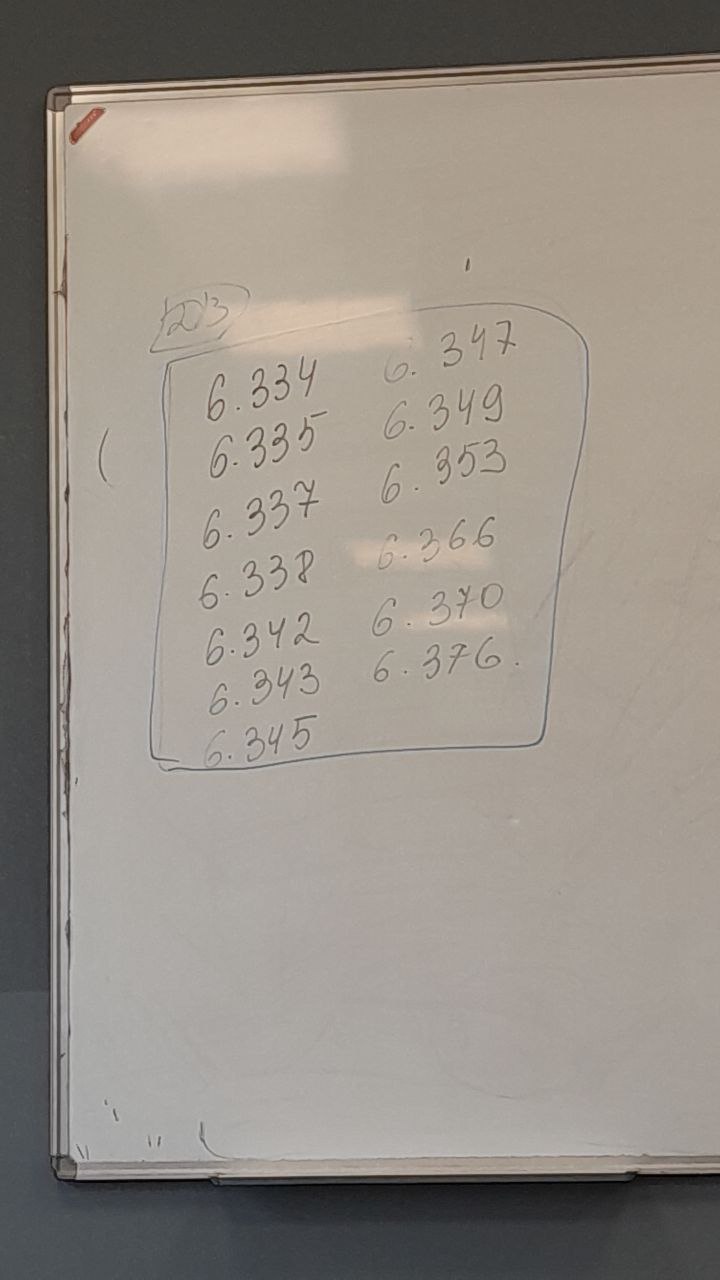 Д/З
6.334
6.335
6.337
6.338
6.342
6.343
6.345
6.347
6.349
6.353
6.366
6.370
6.376.